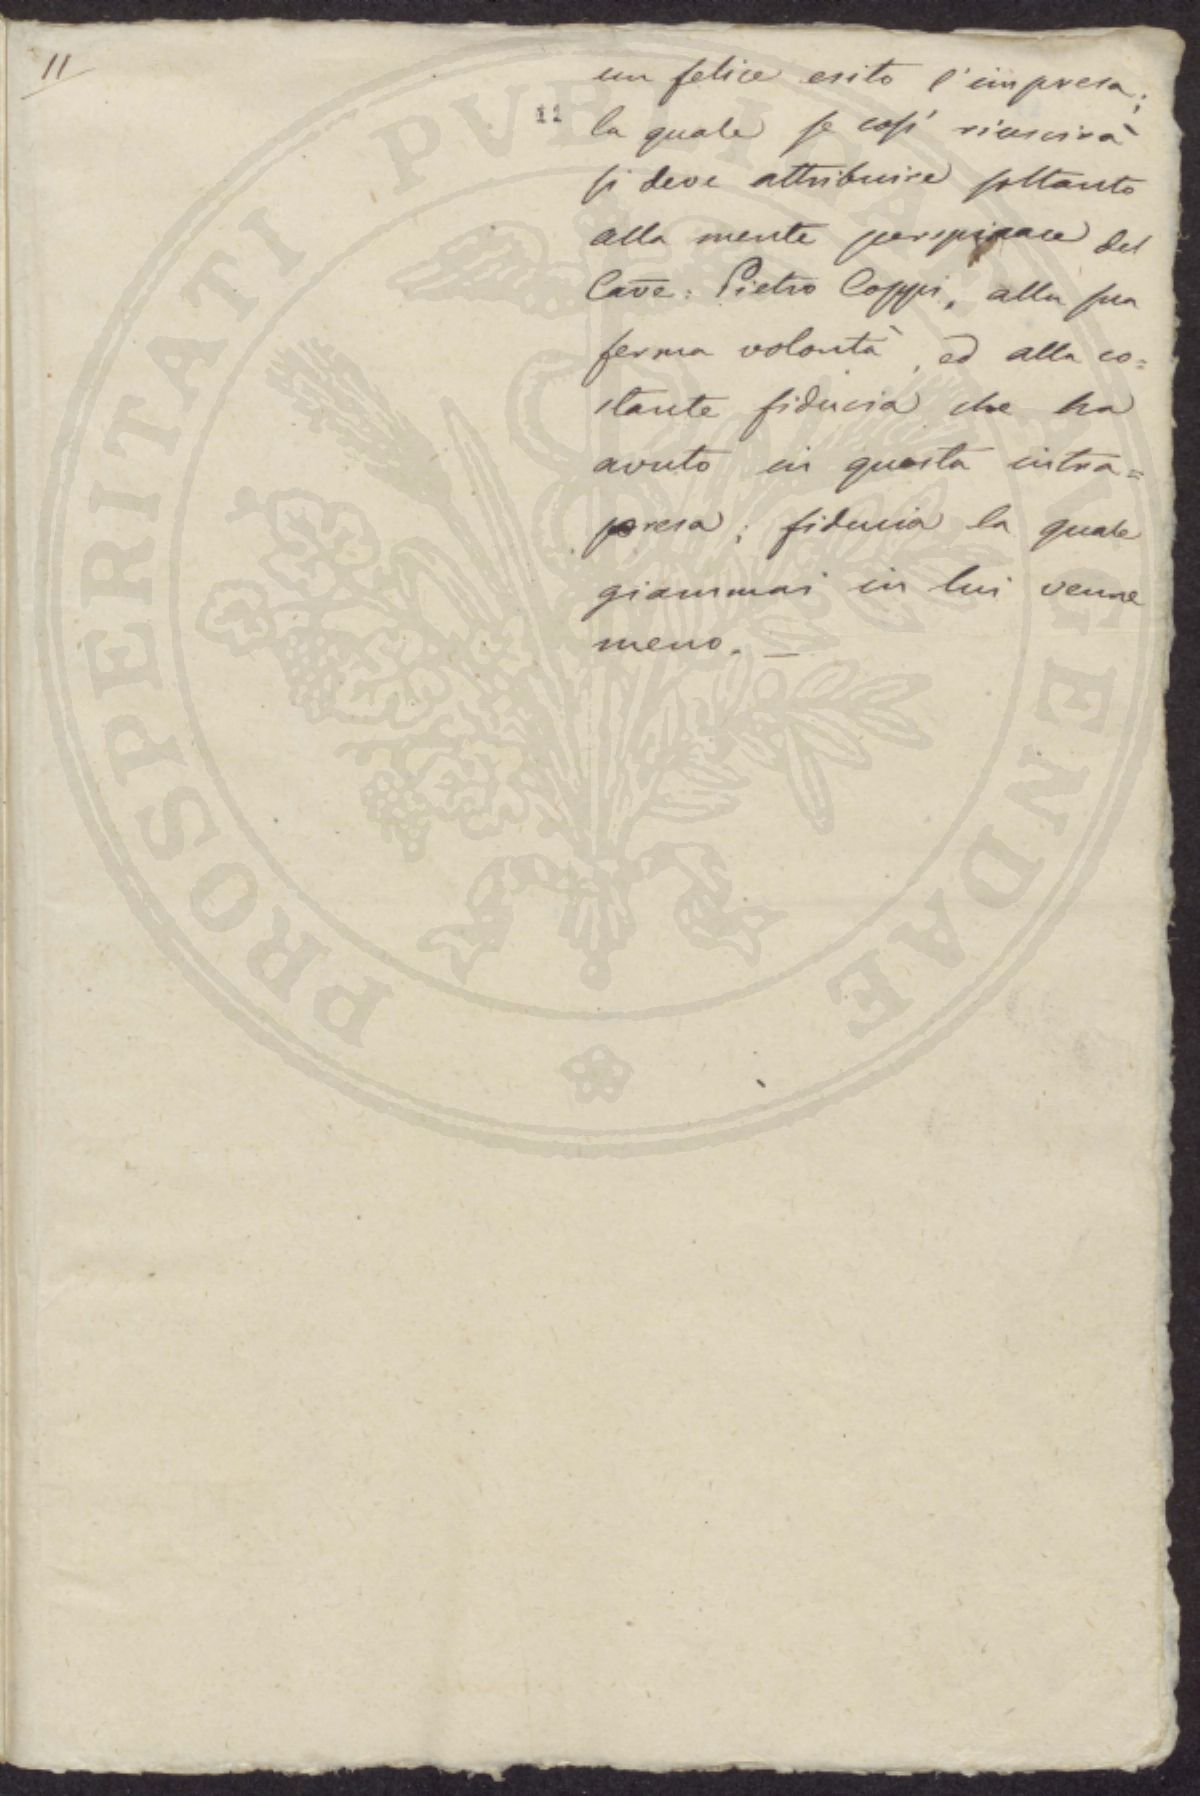 11
un felice esito l'impresa;
11
la quale se così riuscirà
si deve attribuire soltanto
alla mente perspicace del
Cave: Pietro Coppi, alla sua
ferma volontà, ed alla co=
stante fiducia che ha
avuto in questa intra=
presa; fiducia la quale
giammai in lui venne
meno. _
PROSPERITATI PVBLICAE AVGENDAE